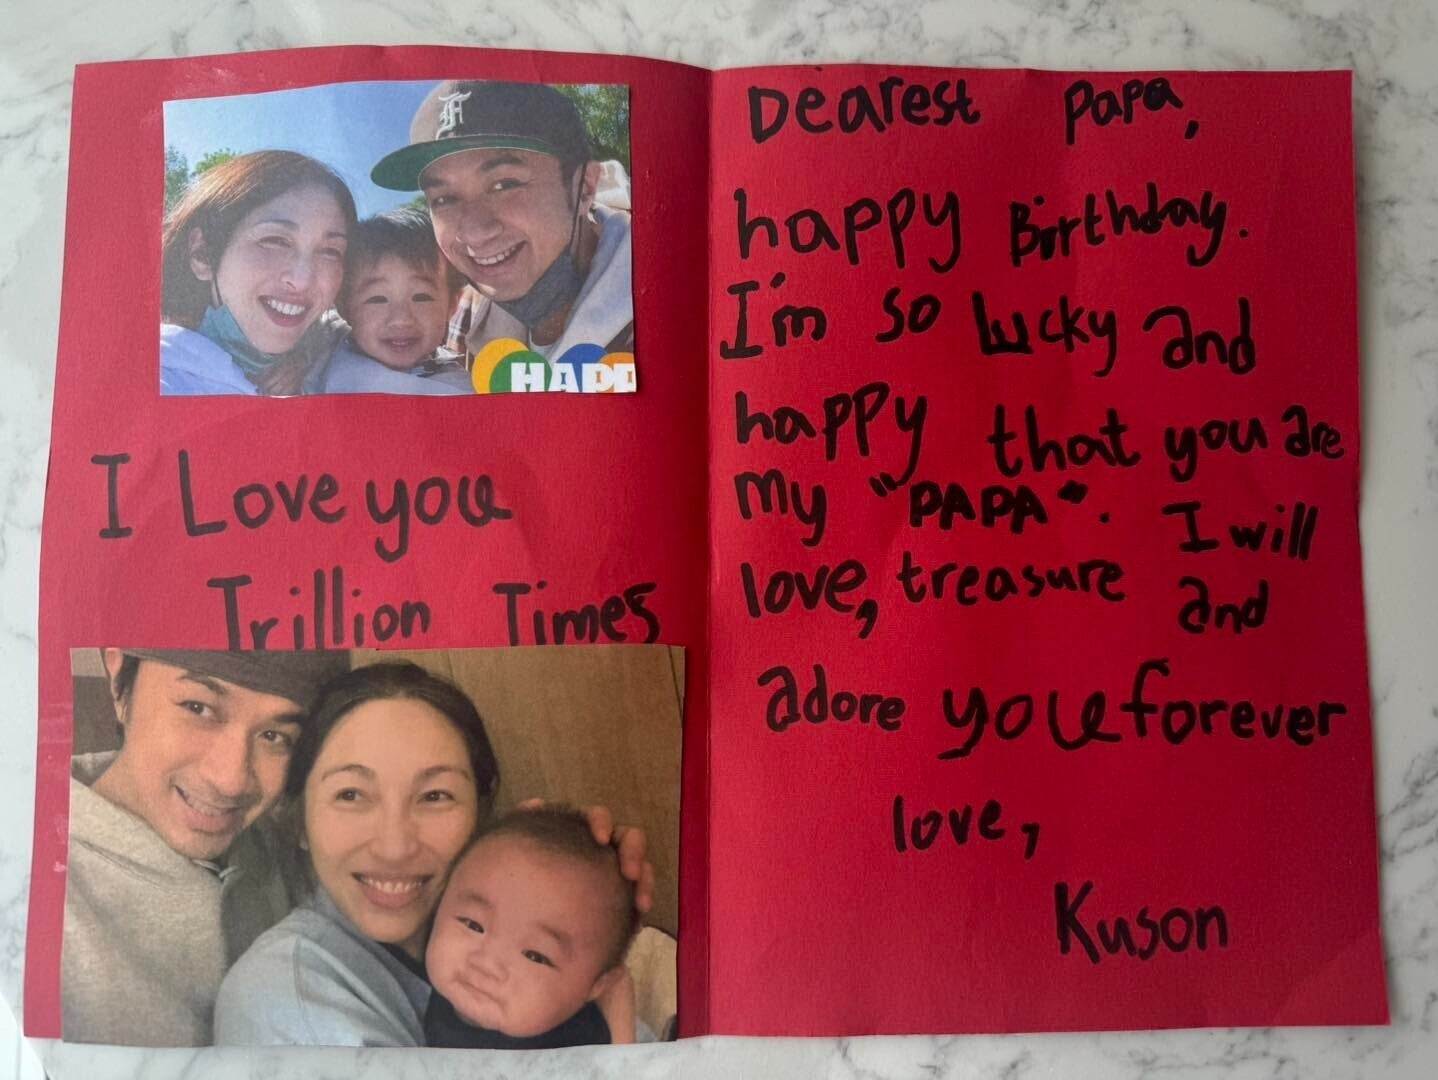 F
HAPP
I Love you
Trillion Times
Dearest Papa,
happy Birthday.
I'm so lucky and
happy that you are
my "PAPA". I will
love, treasure and
adore you forever
love,
Kuson